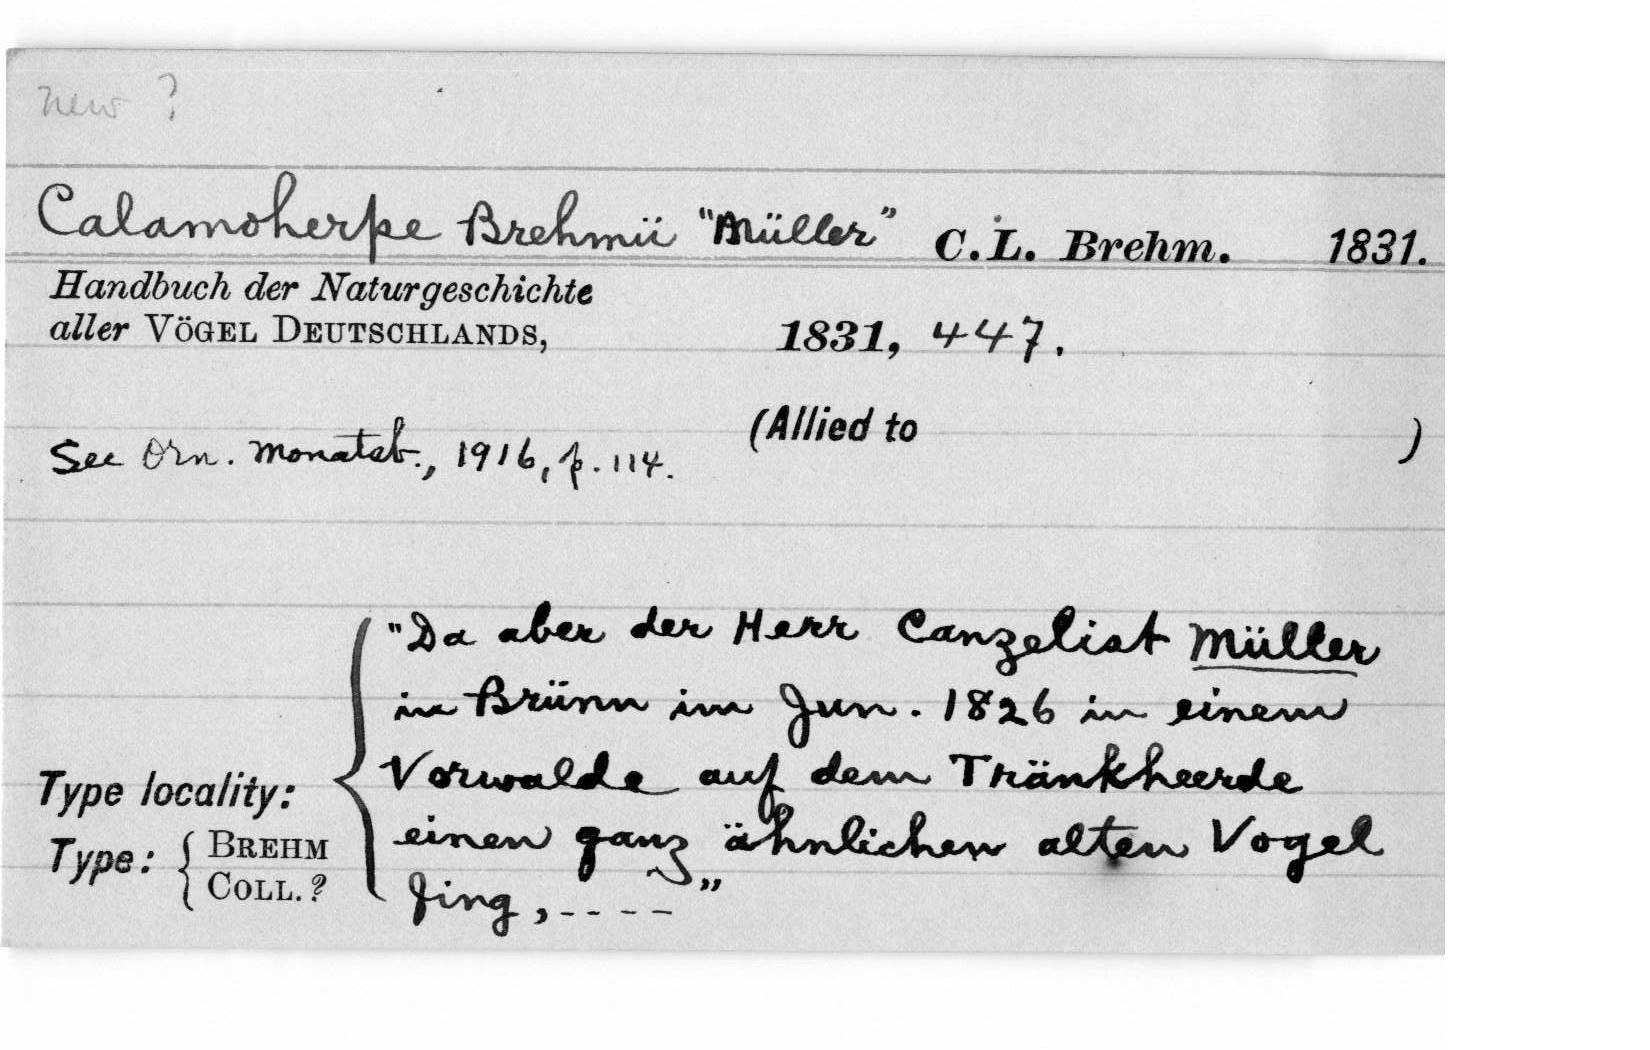 new ?
Calamoherpe Brehmii "Müller" C. L. Brehm. 1831.
Handbuch der Naturgeschichte
aller VÖGEL DEUTSCHLANDS, 1831, 447.
(Allied to )
See Orn. Monatsb., 1916, p. 114.
"Da aber der Herr Canzelist Müller
in Brünn im Jun. 1826 in einem
Vorwalde auf dem Tränkheerde
einen ganz ähnlichen alten Vogel
fing, - - - - "
Type locality:
Type: { BREHM
COLL. ?